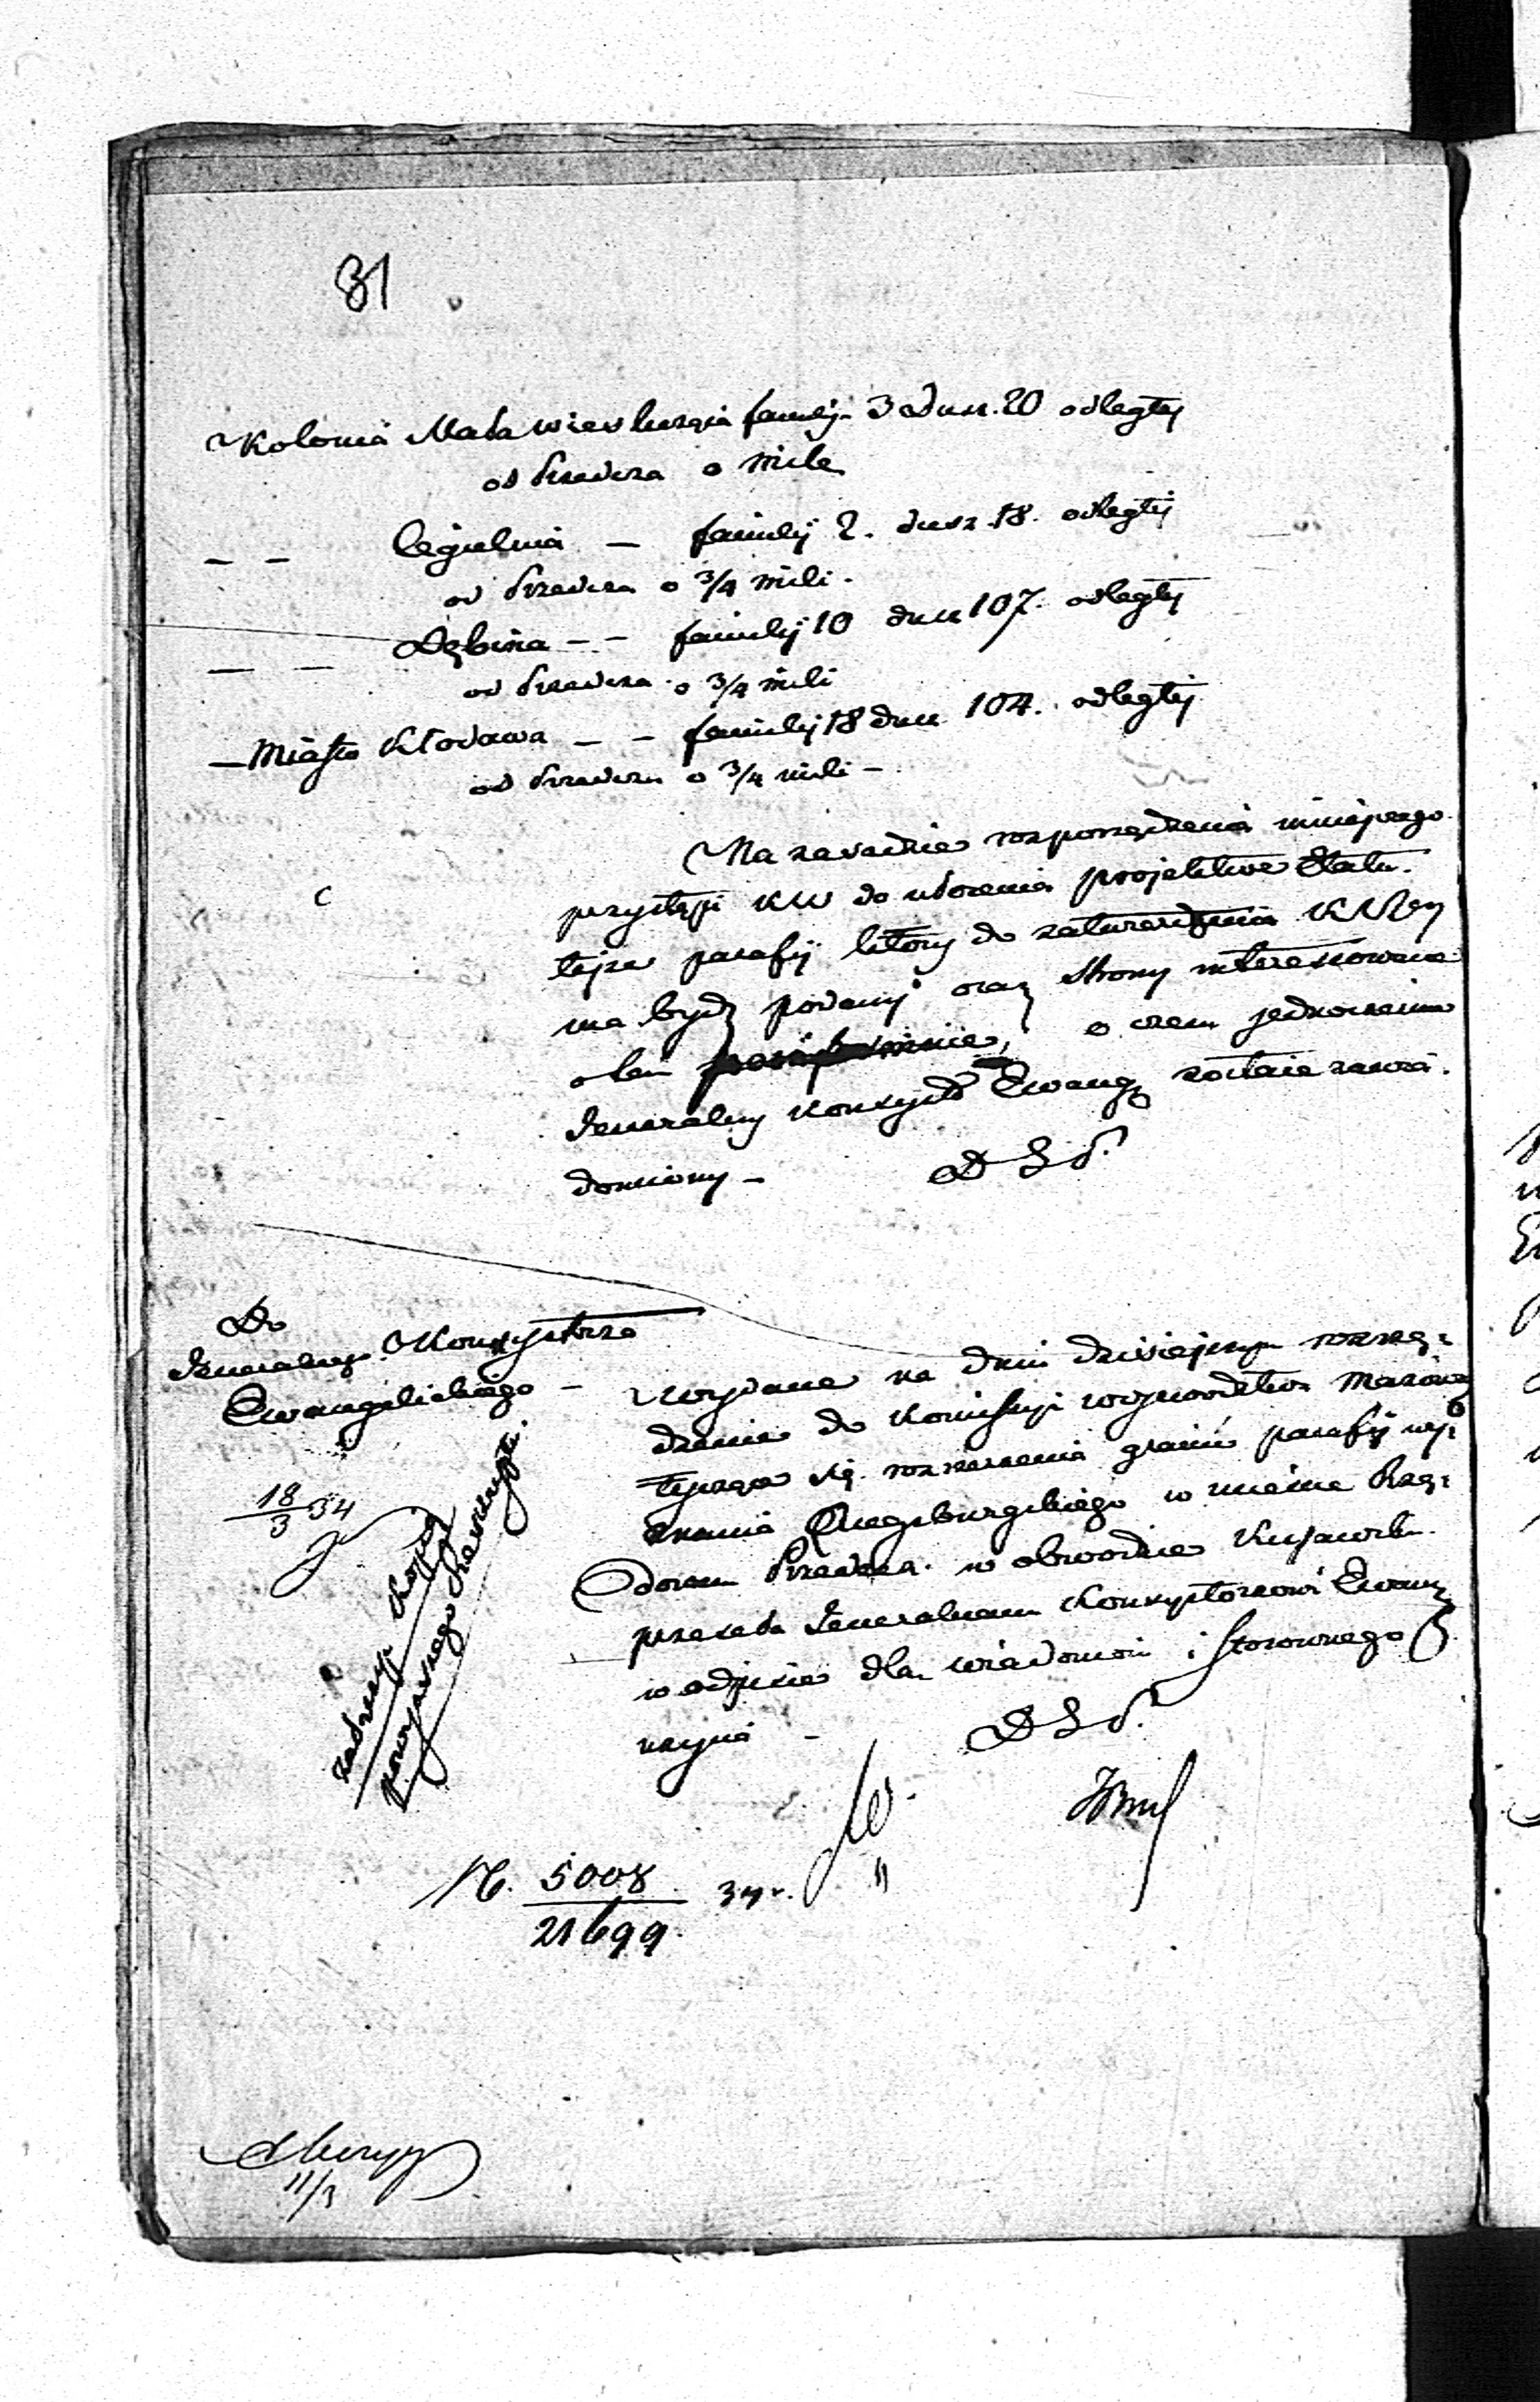 81
Kolonia Mała wies familji 3 dusz. 20 odległey
od Przedcza o mile
— — Cegielnia — familij 2. dusz 18. odległej
od Przedcza o 3/4 mili.
— — Dębina — — familij 10 dusz 107. odległej
od Przedcza o 3/4 mili
— Miasto Kłodawa — — familij 18 dusz 104. odległej
od Przedcza o 3/4 mili —
Na zasadzie rozporządzenia niniejszego
przystąpi KW do ułożenia projektu Etatu
tejże parafij który do zatwierdzenia
ma bydź podany oraz strony interessowane
o tem o czem jednocześnie
Jeneralny Konsystorz Ewang. zostaie zawia.
domiony —
D S P.
Do
Jeneralnego Konsystorza
Ewangelickiego —
Wydane na dniu dzisiejszym rozrzą:
dzenie do Komissyi woiewództwa Mazow
tyczące się rozszerzenia granic parafij wy:
znania Augsburgskiego w mieście Rzą:
dowem Przedcz w obwodzie Kujawsk.
przesyła Jeneralnemu Konsystorzowi Ewang
w odpisie dla wiadomości i stosownego
użycia —
D S P.
18/3 34
załączyć kopią
powyższego Reskryptu
N. 5008/21699 34 r.
11/3